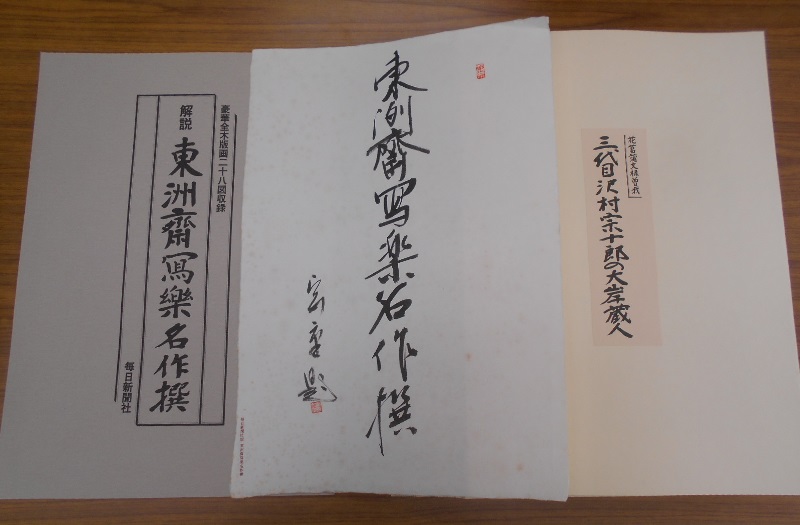 豪華全木版画二十八図収録
解説 東洲齋寫樂名作撰
毎日新聞社
東洲齋寫楽名作撰
題
「花菖蒲文禄曽我」
三代目沢村宗十郎の大岸蔵人